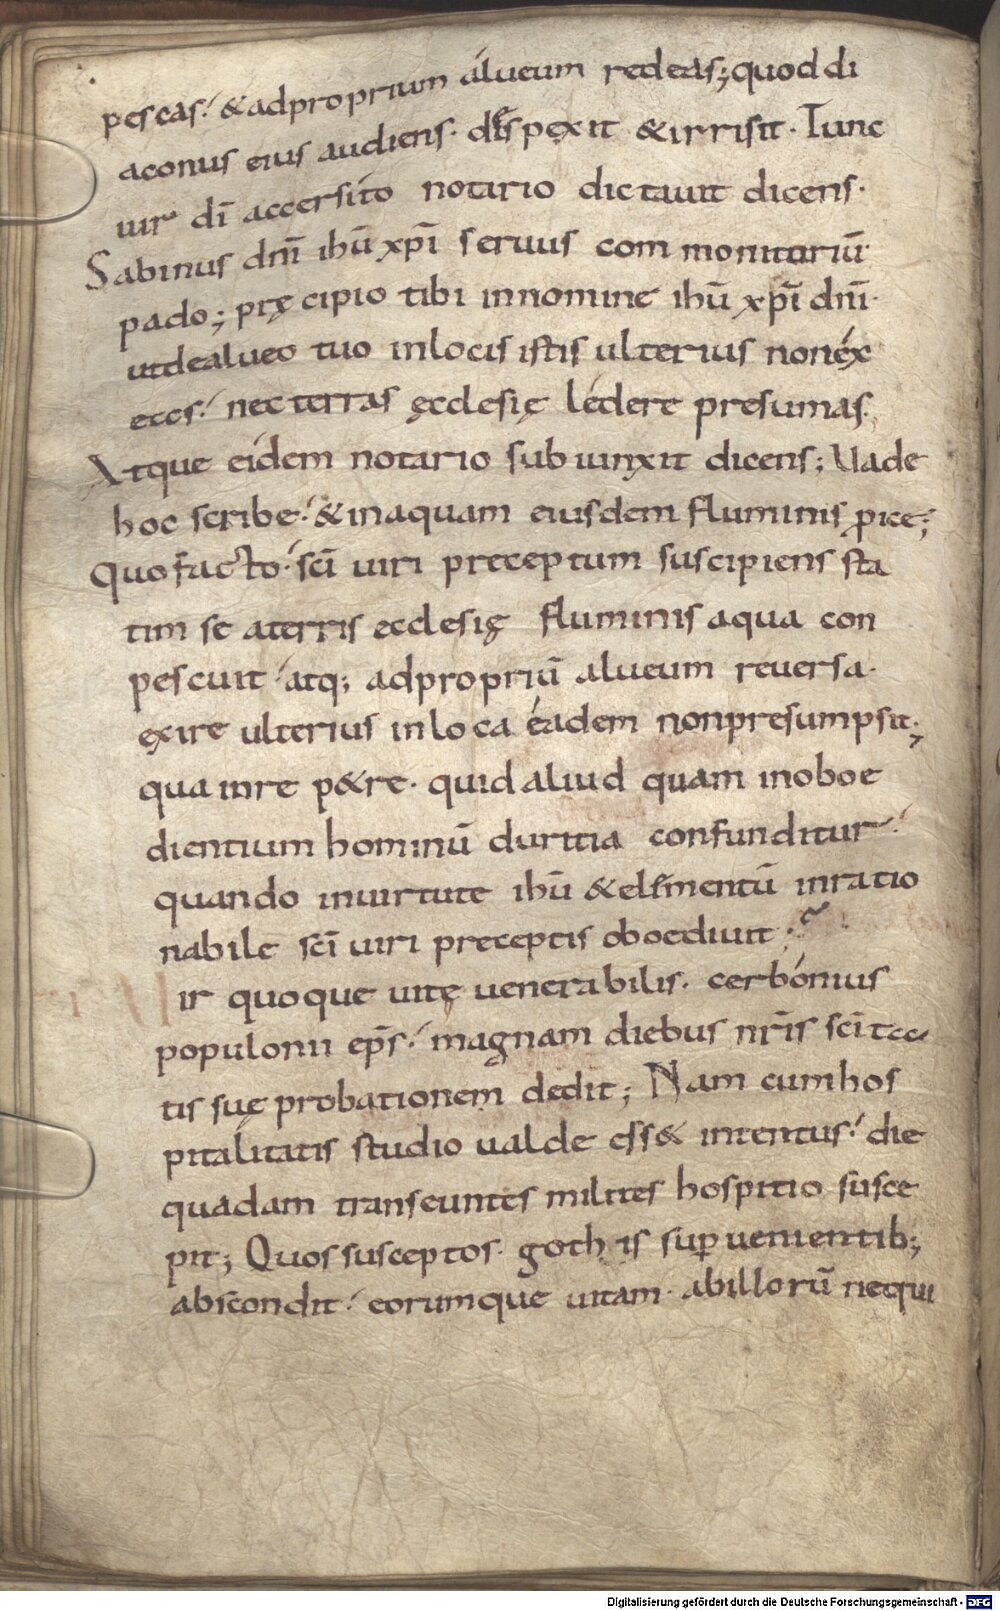 pescas. & adproprium alueum redeas; quod di
aconus eius audiens. despexit & irrisit. Tunc
uir dī accersito notario dictauit dicens.
Sabinus dnī ihū xpī seruus commonitoriū
pado; pręcipio tibi innomine ihū xpī dnī.
utdealueo tuo inlocis istis ulterius nonex
eces. nec terras ęcclesię ledere presumas.
Atque eidem notario subiunxit dicens; Uade
hoc scribe. & inaquam eiusdem fluminis proice;
Quo facto. scī uiri preceptum suscipiens sta
tim se aterris ecclesię fluminis aqua con
pescuit atq; adpropriū alueum reuersa.
exire ulterius inloca eadem nonpresumpsit;
qua inre p&re. quid aliud quam inoboe
dientium hominū duritia confunditur.
quando inuirtute ihū & elementū inratio
nabile scī uiri preceptis oboediuit;
Uir quoque uitę uenerabilis. cerbonius
populonii eps̄. magnam diebus nrīs scīta
tis suę probationem dedit; Nam cumhos
pitalitatis studio ualde ess& intentus. die
quadam transeuntes milites hospitio susce
pit; Quos susceptos. gothis superuenientib;
abscondit. eorumque uitam. abillorū nequi
Digitalisierung gefördert durch die Deutsche Forschungsgemeinschaft - DFG